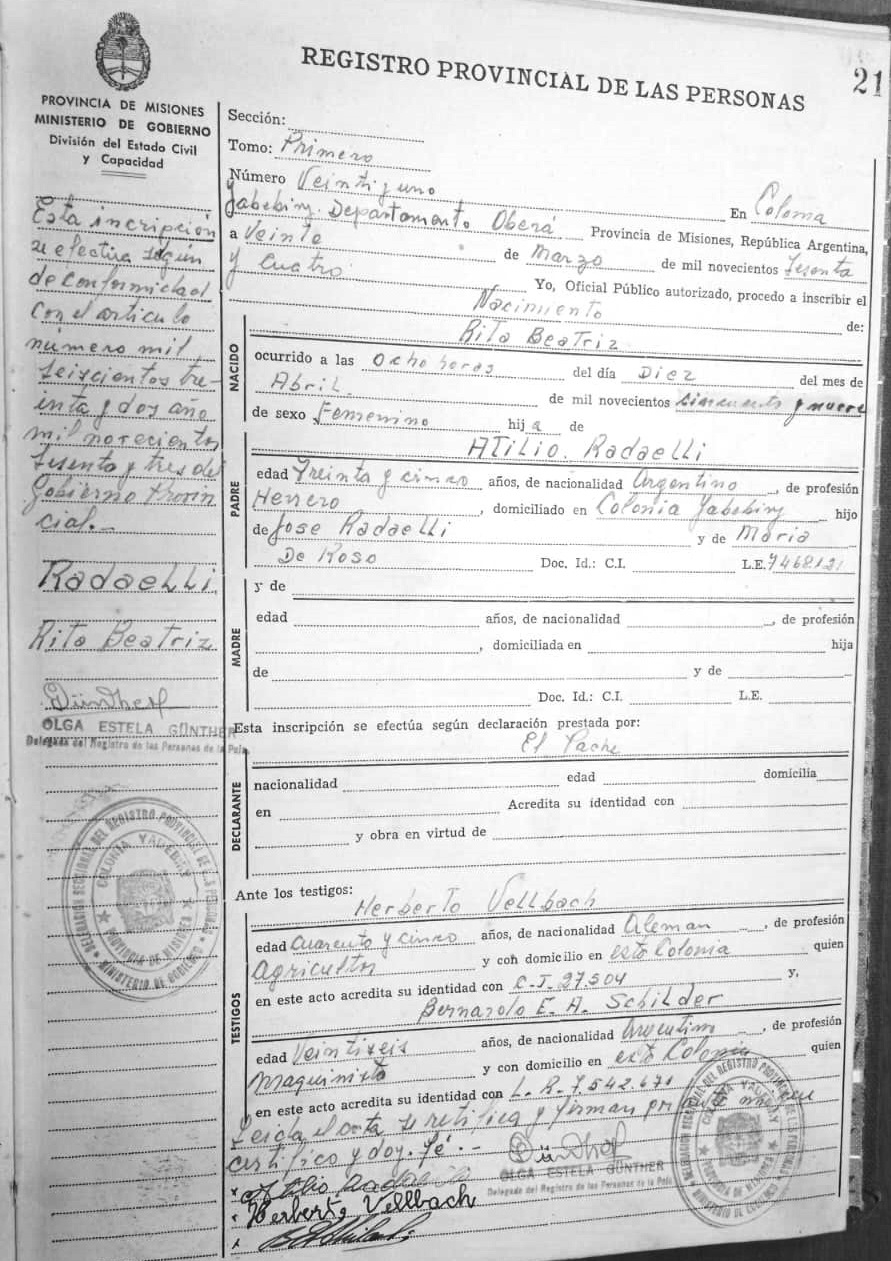 REGISTRO PROVINCIAL DE LAS PERSONAS
21
PROVINCIA DE MISIONES
MINISTERIO DE GOBIERNO
División del Estado Civil
y Capacidad
Esta incripción
se efectua según
de conformidad
con el articulo
número mil
seiscientos tre-
inta y dos año
mil novecientos
sesenta y tres del
Gobierno Provin
cial.-
Radaelli
Rita Beatriz
OLGA ESTELA GÜNTHER
Delegada del Registro de las Personas de la Pcia
DELEGACION SECCIONAL DEL REGISTRO PROVINCIAL DE LAS PERSONAS
COLONIA YABEBIRY
PROVINCIA DE MISIONES
MINISTERIO DE GOBIERNO
Sección:
Tomo: Primero
Número Veintiguno En Colonia
Yabebiry. Departamento Oberá Provincia de Misiones, República Argentina,
a Veinte de Marzo de mil novecientos sesenta
y cuatro Yo, Oficial Público autorizado, procedo a inscribir el
Nacimiento de:
NACIDO
Rita Beatriz
ocurrido a las Ocho horas del día Diez del mes de
Abril de mil novecientos cincuenta y nueve
de sexo Femenino hij a de
PADRE
Atilio Radaelli
edad Treinta y cinco años, de nacionalidad Argentino, de profesión
Herrero, domiciliado en Colonia Yabebiry hijo
de Jose Radaelli y de Maria
De Roso Doc. Id.: C.I. L.E. 7468121
MADRE
y de
edad años, de nacionalidad , de profesión
, domiciliada en hija
de y de
Doc. Id.: C.I. L.E.
Esta inscripción se efectúa según declaración prestada por:
El Padre
DECLARANTE
nacionalidad edad domicilia
en Acredita su identidad con
y obra en virtud de
Ante los testigos:
TESTIGOS
Herberto Vellbach
edad Cuarenta y cinco años, de nacionalidad Aleman, de profesión
Agricultor y con domicilio en esta Colonia quien
en este acto acredita su identidad con C.I. 27.504 y,
Bernardo E. A. Schilder
edad Veintiseis años, de nacionalidad Argentino, de profesión
Maquinista y con domicilio en esta Colonia quien
en este acto acredita su identidad con 7.542.671
Leida el acta se retifica y firman por ante mi que
certifico y doy fé.-
OLGA ESTELA GÜNTHER
Delegada del Registro de las Personas de la Pcia
Atilio Radaelli
Herberto Vellbach